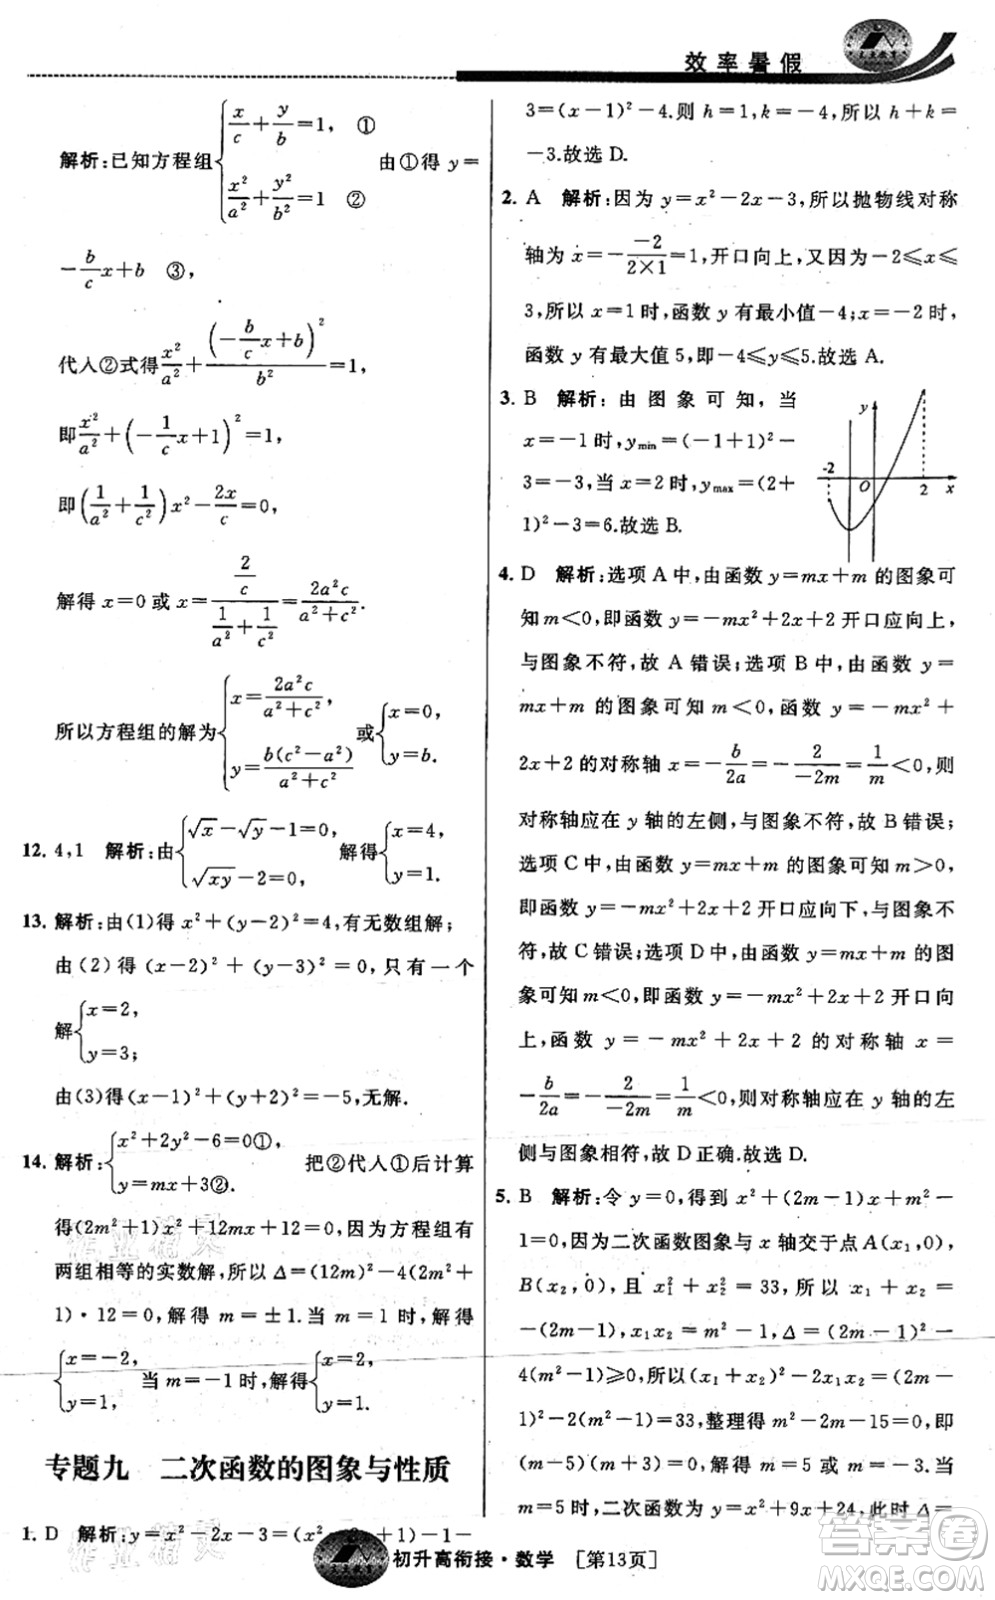 效率暑假
解析:已知方程组{x/c+y/b=1, ① x²/a²+y²/b²=1 ② 由①得 y=
-b/c x+b ③,
代人②式得 x²/a²+(-b/c x+b)²/b²=1,
即 x²/a²+(-1/c x+1)²=1,
即(1/a²+1/c²)x²-2x/c=0,
解得 x=0 或 x=(2/c)/(1/a²+1/c²)=2a²c/(a²+c²).
所以方程组的解为{x=2a²c/(a²+c²) y=b(c²-a²)/(a²+c²) 或{x=0, y=b.
12. 4,1 解析:由{√x-√y-1=0, √xy-2=0 解得{x=4, y=1.
13. 解析:由(1)得 x²+(y-2)²=4,有无数组解;
由(2)得(x-2)²+(y-3)²=0,只有一个
解{x=2, y=3;
由(3)得(x-1)²+(y+2)²=-5,无解.
14. 解析:{x²+2y²-6=0①, y=mx+3②. 把②代人①后计算
得(2m²+1)x²+12mx+12=0,因为方程组有
两组相等的实数解,所以 Δ=(12m)²-4(2m²+
1)·12=0,解得 m=±1.当 m=1 时,解得
{x=-2, y=1, 当 m=-1 时,解得{x=2, y=1.
专题九 二次函数的图象与性质
1. D 解析:y=x²-2x-3=(x²-2x+1)-1-
3=(x-1)²-4.则 h=1,k=-4,所以 h+k=
-3.故选 D.
2. A 解析:因为 y=x²-2x-3,所以抛物线对称
轴为 x=-(-2)/(2×1)=1,开口向上,又因为-2≤x≤
3,所以 x=1 时,函数 y 有最小值-4;x=-2 时,
函数 y 有最大值 5,即-4≤y≤5.故选 A.
3. B 解析:由图象可知,当
x=-1 时,ymin=(-1+1)²-
3=-3,当 x=2 时,ymax=(2+
1)²-3=6.故选 B.
y
-2 O 2 x
4. D 解析:选项 A 中,由函数 y=mx+m 的图象可
知 m<0,即函数 y=-mx²+2x+2 开口应向上,
与图象不符,故 A 错误;选项 B 中,由函数 y=
mx+m 的图象可知 m<0,函数 y=-mx²+
2x+2 的对称轴 x=-b/2a=-2/(-2m)=1/m<0,则
对称轴应在 y 轴的左侧,与图象不符,故 B 错误;
选项 C 中,由函数 y=mx+m 的图象可知 m>0,
即函数 y=-mx²+2x+2 开口应向下,与图象不
符,故 C 错误;选项 D 中,由函数 y=mx+m 的图
象可知 m<0,即函数 y=-mx²+2x+2 开口向
上,函数 y=-mx²+2x+2 的对称轴 x=
-b/2a=-2/(-2m)=1/m<0,则对称轴应在 y 轴的左
侧与图象相符,故 D 正确.故选 D.
5. B 解析:令 y=0,得到 x²+(2m-1)x+m²-
1=0,因为二次函数图象与 x 轴交于点 A(x₁,0),
B(x₂,0),且 x₁²+x₂²=33,所以 x₁+x₂=
-(2m-1),x₁x₂=m²-1,Δ=(2m-1)²-
4(m²-1)≥0,所以(x₁+x₂)²-2x₁x₂=(2m-
1)²-2(m²-1)=33,整理得 m²-2m-15=0,即
(m-5)(m+3)=0,解得 m=5 或 m=-3.
当 m=5 时,二次函数 y=x²+9x+24,此时 Δ=
初升高衔接·数学 [第13页]
答案圈
MXQE.COM